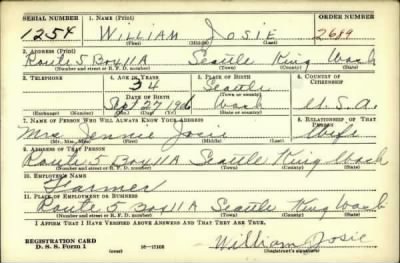 SERIAL NUMBER 1. NAME (Print) ORDER NUMBER
1254 WILLIAM JOSIE 2689
(First) (Middle) (Last)
2. ADDRESS (Print)
Route 5 Box 11A Seattle King Wash
(Number and street or R. F. D. number) (Town) (County) (State)
3. TELEPHONE 4. AGE IN YEARS 5. PLACE OF BIRTH 6. COUNTRY OF CITIZENSHIP
34 Seattle
DATE OF BIRTH (Town or county)
Sept 27 1906 Wash U.S.A.
(Exchange) (Number) (Mo.) (Day) (Yr.) (State or country)
7. NAME OF PERSON WHO WILL ALWAYS KNOW YOUR ADDRESS 8. RELATIONSHIP OF THAT PERSON
Mrs Jennie Josie Wife
(Mr., Mrs., Miss) (First) (Middle) (Last)
9. ADDRESS OF THAT PERSON
Route 5 Box 11A Seattle King Wash
(Number and street or R. F. D. number) (Town) (County) (State)
10. EMPLOYER'S NAME
Farmer
11. PLACE OF EMPLOYMENT OR BUSINESS
Route 5 Box 11A Seattle King Wash
(Number and street or R. F. D. number) (Town) (County) (State)
I AFFIRM THAT I HAVE VERIFIED ABOVE ANSWERS AND THAT THEY ARE TRUE.
REGISTRATION CARD
D. S. S. Form 1 (over) 16-17105 William Josie
(Registrant's signature)